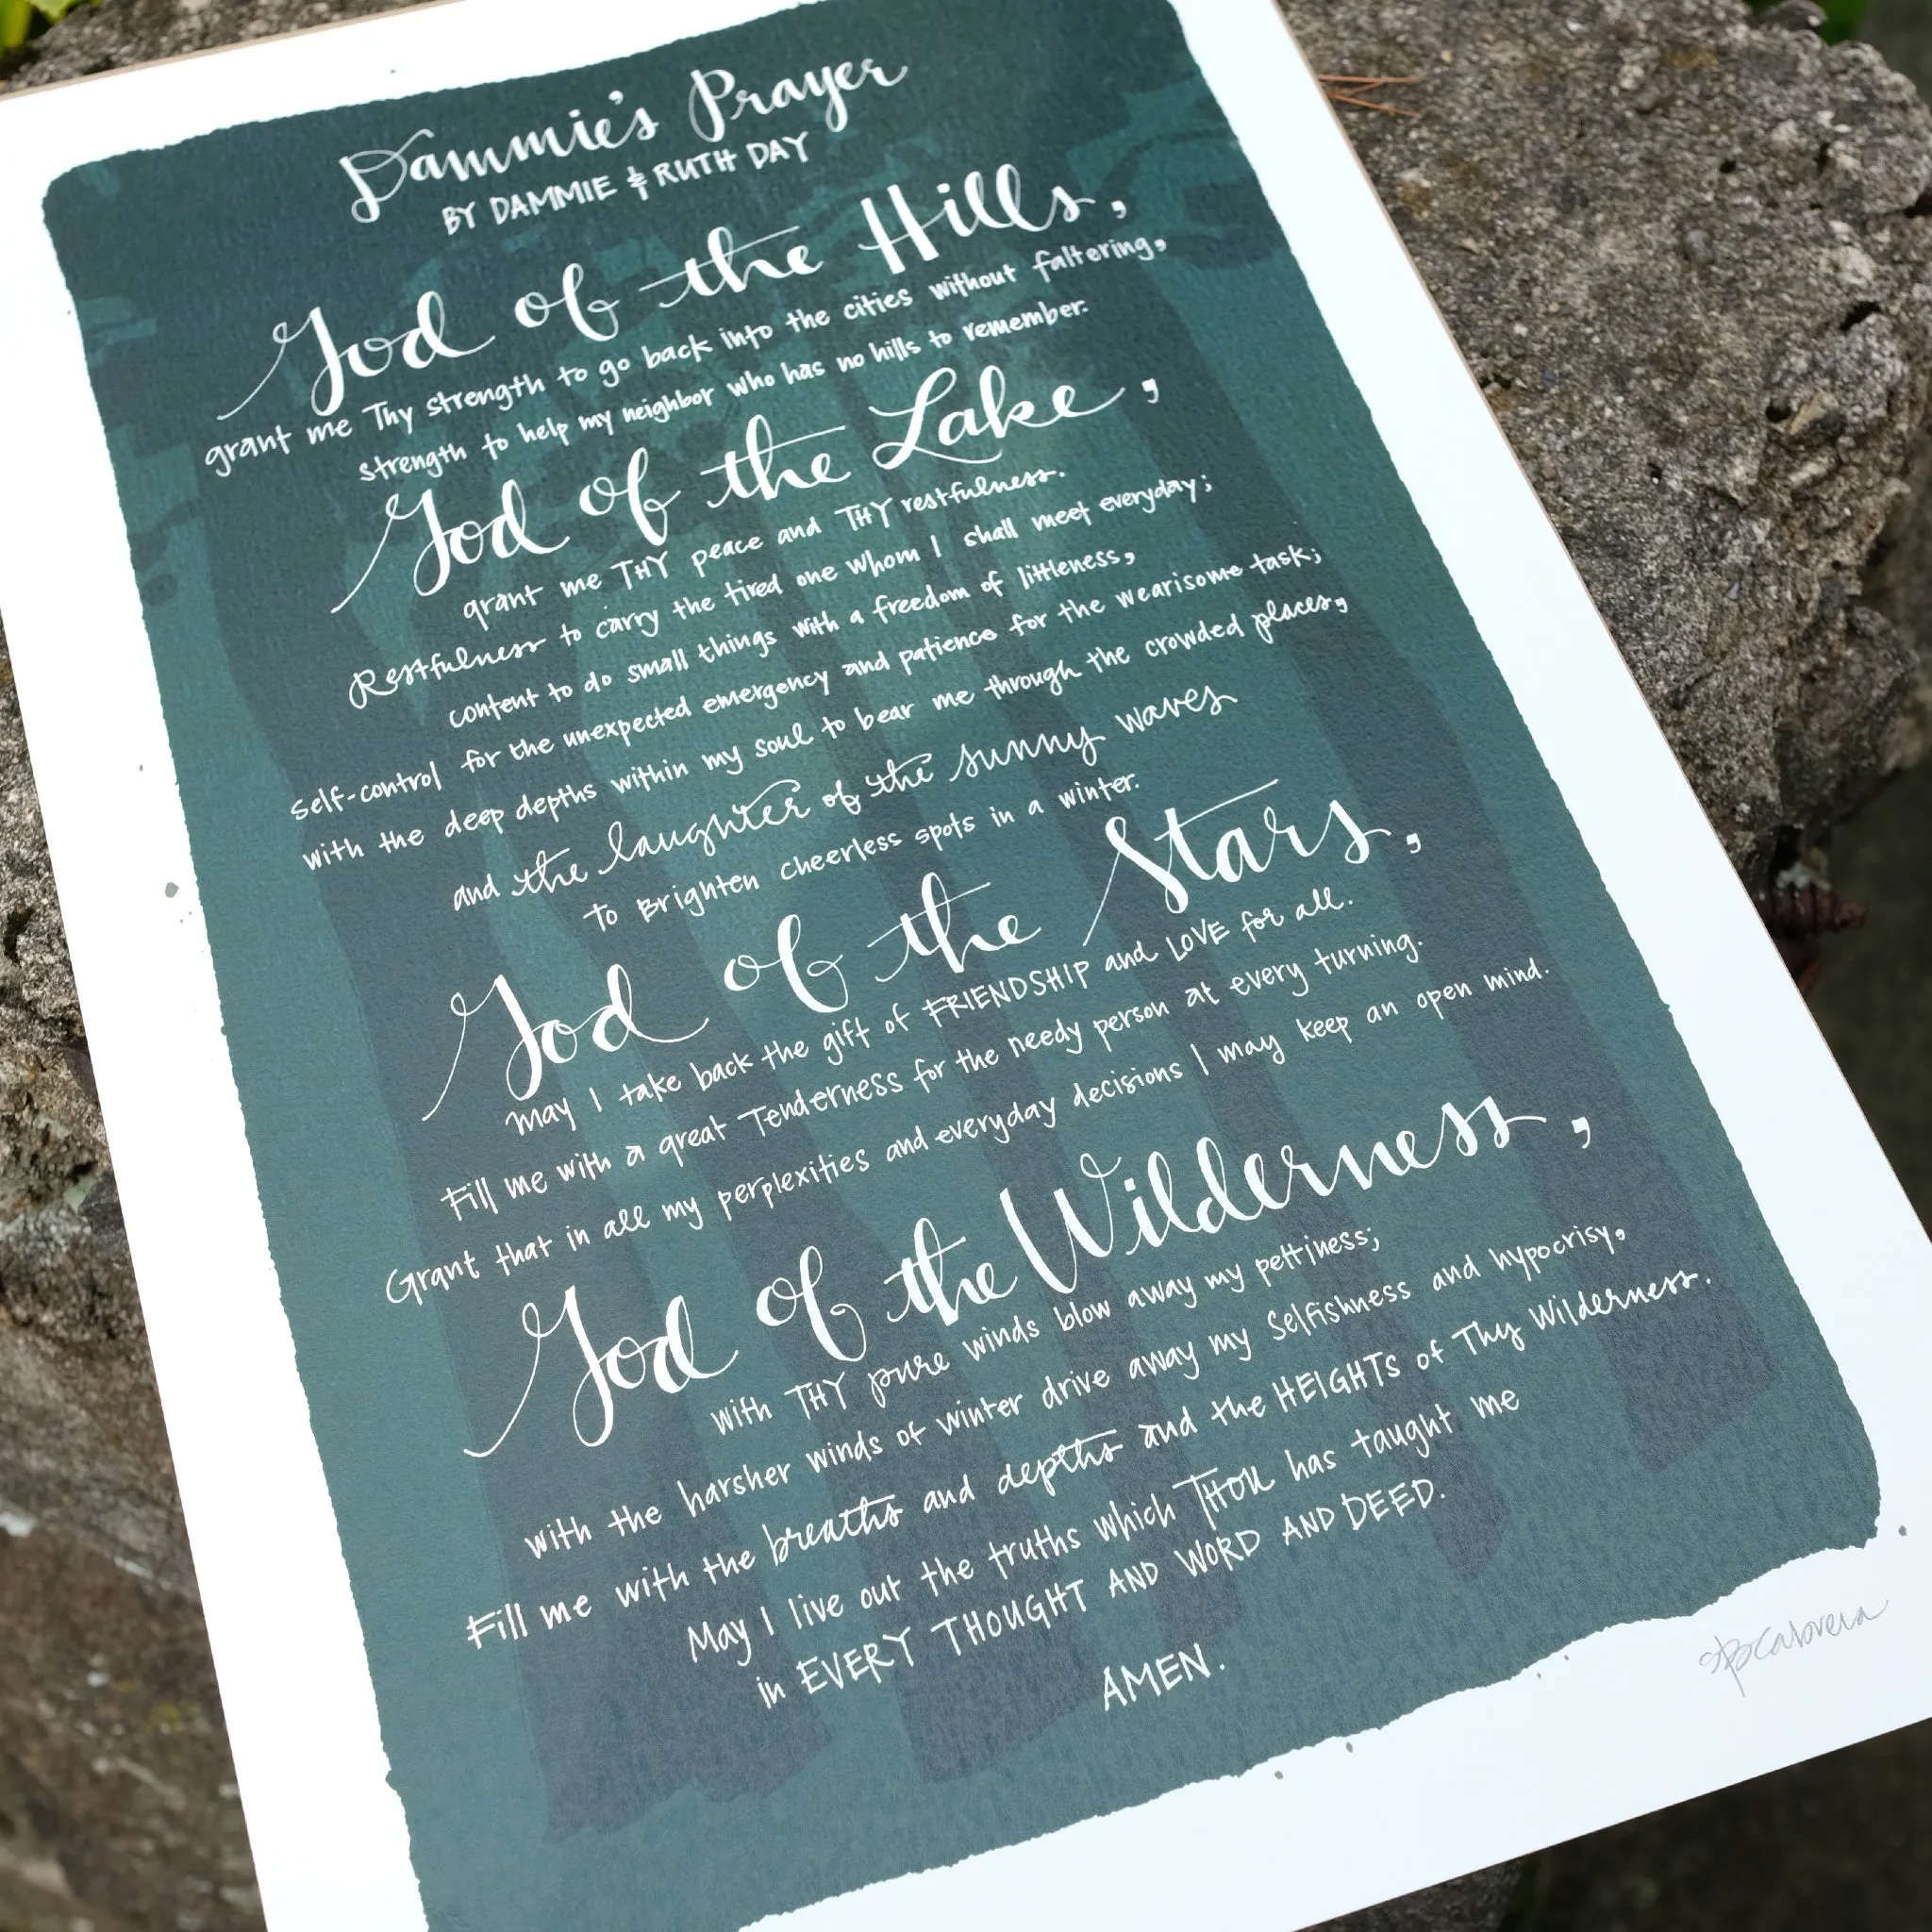 Dammie's Prayer
BY DAMMIE & RUTH DAY
God of the Hills,
grant me Thy strength to go back into the cities without faltering,
strength to help my neighbor who has no hills to remember.
God of the Lake,
grant me THY peace and THY restfulness.
Restfulness to carry the tired one whom I shall meet everyday;
content to do small things with a freedom of littleness,
self-control for the unexpected emergency and patience for the wearisome task;
with the deep depths within my soul to bear me through the crowded places,
and the laughter of the sunny waves
To Brighten cheerless spots in a winter.
God of the Stars,
may I take back the gift of FRIENDSHIP and LOVE for all.
Fill me with a great Tenderness for the needy person at every turning.
Grant that in all my perplexities and everyday decisions I may keep an open mind.
God of the Wilderness,
with THY pure winds blow away my pettiness;
with the harsher winds of winter drive away my selfishness and hypocrisy,
Fill me with the breaths and depths and the HEIGHTS of Thy Wilderness.
May I live out the truths which THOU has taught me
in EVERY THOUGHT AND WORD AND DEED.
AMEN.